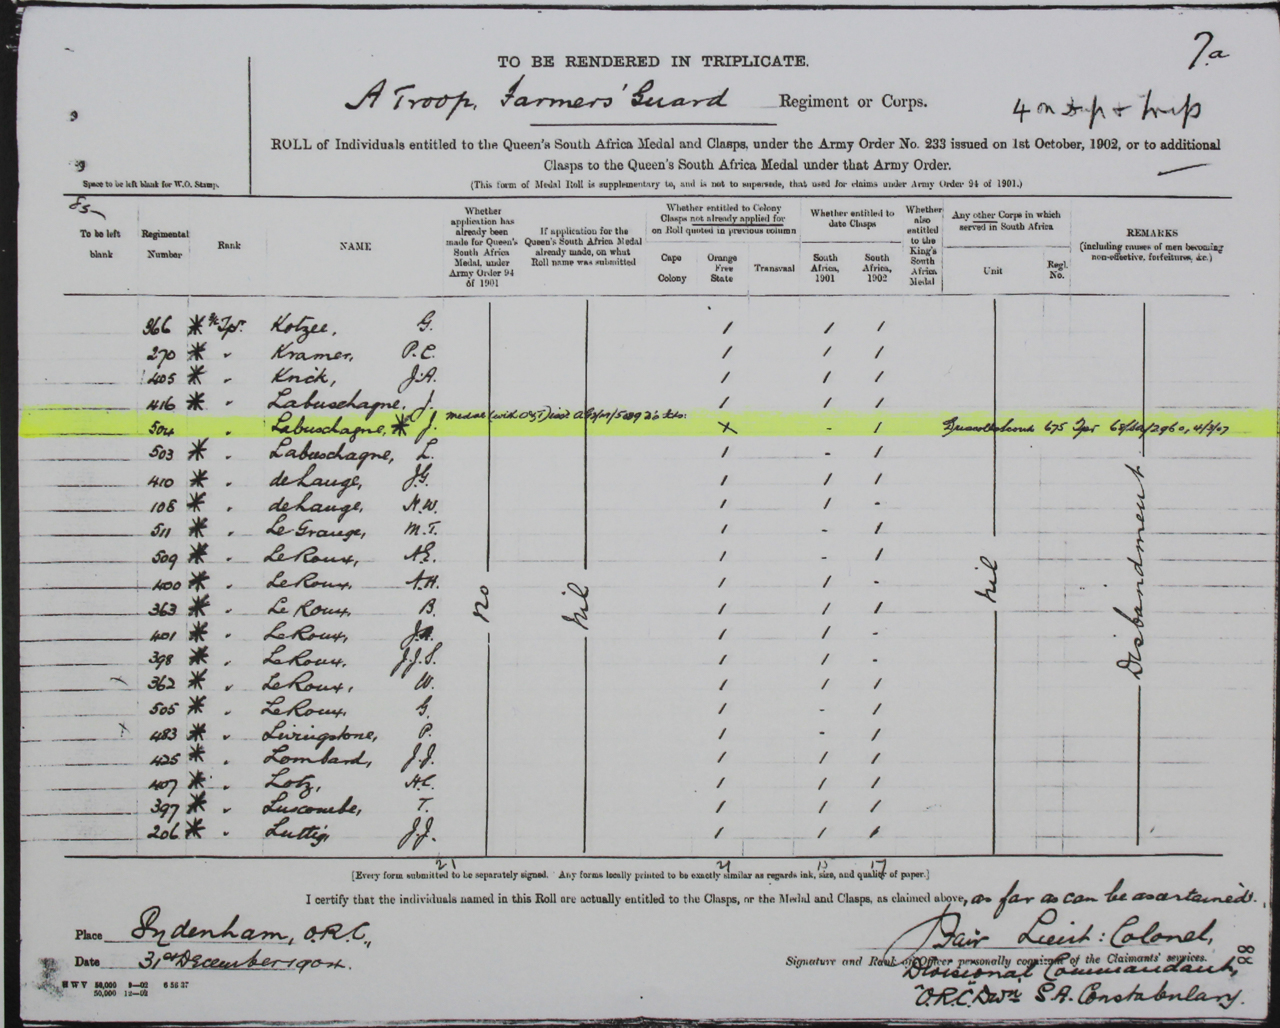 7.a
TO BE RENDERED IN TRIPLICATE.
A Troop, Farmers' Guard Regiment or Corps.
4 on
ROLL of Individuals entitled to the Queen's South Africa Medal and Clasps, under the Army Order No. 233 issued on 1st October, 1902, or to additional
Clasps to the Queen's South Africa Medal under that Army Order.
(This form of Medal Roll is supplementary to, and is not to supersede, that used for claims under Army Order 94 of 1901.)
Space to be left blank for W.O. Stamp.
To be left blank
Regimental Number
Rank
NAME
Whether application has already been made for Queen's South Africa Medal, under Army Order 94 of 1901
If application for the Queen's South Africa Medal already made, on what Roll name was submitted
Whether entitled to Colony Clasps not already applied for on Roll quoted in previous column
Cape Colony
Orange Free State
Transvaal
Whether entitled to date Clasps
South Africa, 1901
South Africa, 1902
Whether also entitled to the King's South Africa Medal
Any other Corps in which served in South Africa
Unit
Regl. No.
REMARKS
(including causes of men becoming non-effective, forfeitures, &c.)
366 * Tpr. Kotzee, G. / / /
270 * " Kramer, P.C. / / /
405 * " Krick, J.A. / / /
416 * " Labuschagne, J. / / /
504 " Labuschagne, * J. x - / 675 Tpr 4/3/07
503 * " Labuschagne, L. / - /
410 * " de Lange, J.G. / / /
108 * " de Lange, N.W. / / -
511 * " Le Grange, M.T. / - /
509 * " Le Roux, A.E. / - /
400 * " Le Roux, A.H. / / -
363 * " Le Roux, B. / / /
401 * " Le Roux, / / -
398 * " Le Roux, J.J.S. / / -
362 * " Le Roux, W. / / /
505 * " Le Roux, G. / - /
483 * " Livingstone, P. / - /
425 * " Lombard, J.J. / / /
407 * " Lotz, H.C. / / /
397 * " Luscombe, T. / / /
206 * " Luttig, J.J. / / /
No
Nil
Nil
Disbandment
21 21 15 17
[Every form submitted to be separately signed. Any forms locally printed to be exactly similar as regards ink, size, and quality of paper.]
I certify that the individuals named in this Roll are actually entitled to the Clasps, or the Medal and Clasps, as claimed above, as far as can be ascertained.
Place Sydenham, O.R.C.,
Date 31st December 1904.
Fair Lieut: Colonel,
Signature and Rank of Officer personally cognizant of the Claimants' services.
Divisional Commandant,
"O.R.C." Dwn S.A. Constabulary.
88
H W V 50,000 9—02 6 56 37
50,000 12—02